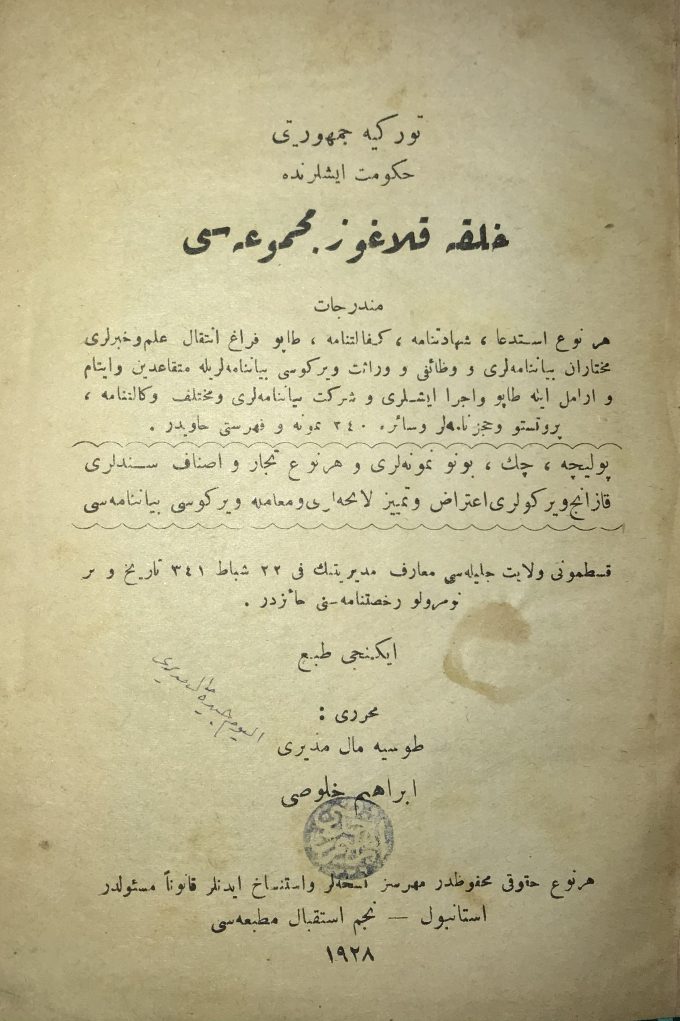 توركيه جمهوريتى
حكومت ايشلرنده
خلقه قلاغوز مجموعه‌سى
مندرجات
هر نوع استدعا ، شهادتنامه ، كفالتنامه ، طاپو فراغ انتقال علم‌وخبرلرى
مختاران بياننامه‌لرى و وظائفى و وراثت ويركوسى بياننامه‌لريله متقاعدين وايتام
و ارامل ايله طاپو واجرا ايشلرى و شركت بياننامه‌لرى ومختلف وكالتنامه ،
پروتستو وحجزنامه‌لر وسائره ٣٤٠ نمونه و فهرستى حاويدر .
پوليچه ، چك ، بونو نمونه‌لرى و هرنوع تجار و اصناف سندلرى
قازانج ويركولرى اعتراض وتمييز لايحه‌لرى ومعامله ويركوسى بياننامه‌سى
قسطمونى ولايت جليله‌سى معارف مديريتنك فى ٢٢ شباط ٣٤١ تاريخ و بر
نومرولو رخصتنامه‌سنى حائزدر .
ايكنجى طبع
محررى :
طوسيه مال مديرى
ابراهيم خلوصى
اليوم مال مديرى
هرنوع حقوقى محفوظدر مهرسز نسخه‌لر واستنساخ ايدنلر قانوناً مسئولدر
استانبول — نجم استقبال مطبعه‌سى
١٩٢٨